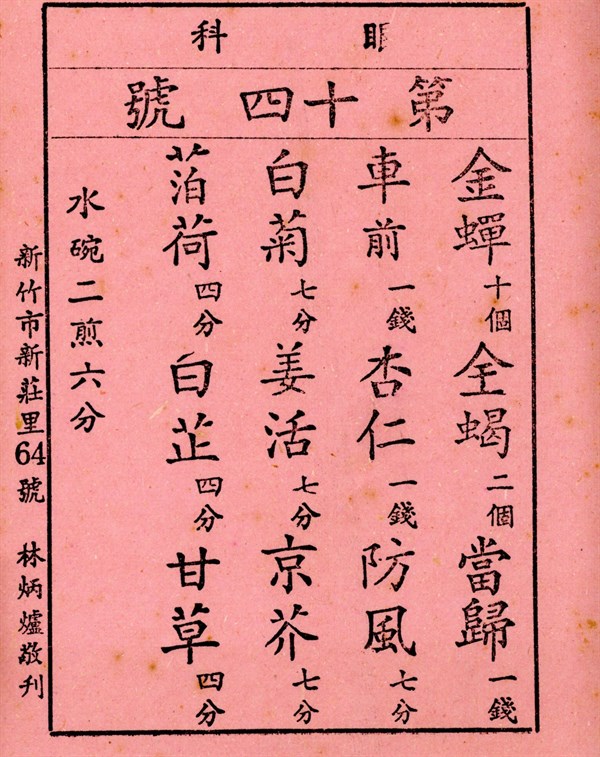 眼科
第十四號
金蟬十個 全蝎二個 當歸一錢
車前一錢 杏仁一錢 防風七分
白菊七分 姜活七分 京芥七分
萡荷四分 白芷四分 甘草四分
水碗二煎六分
新竹市新莊里64號 林炳爐敬刊